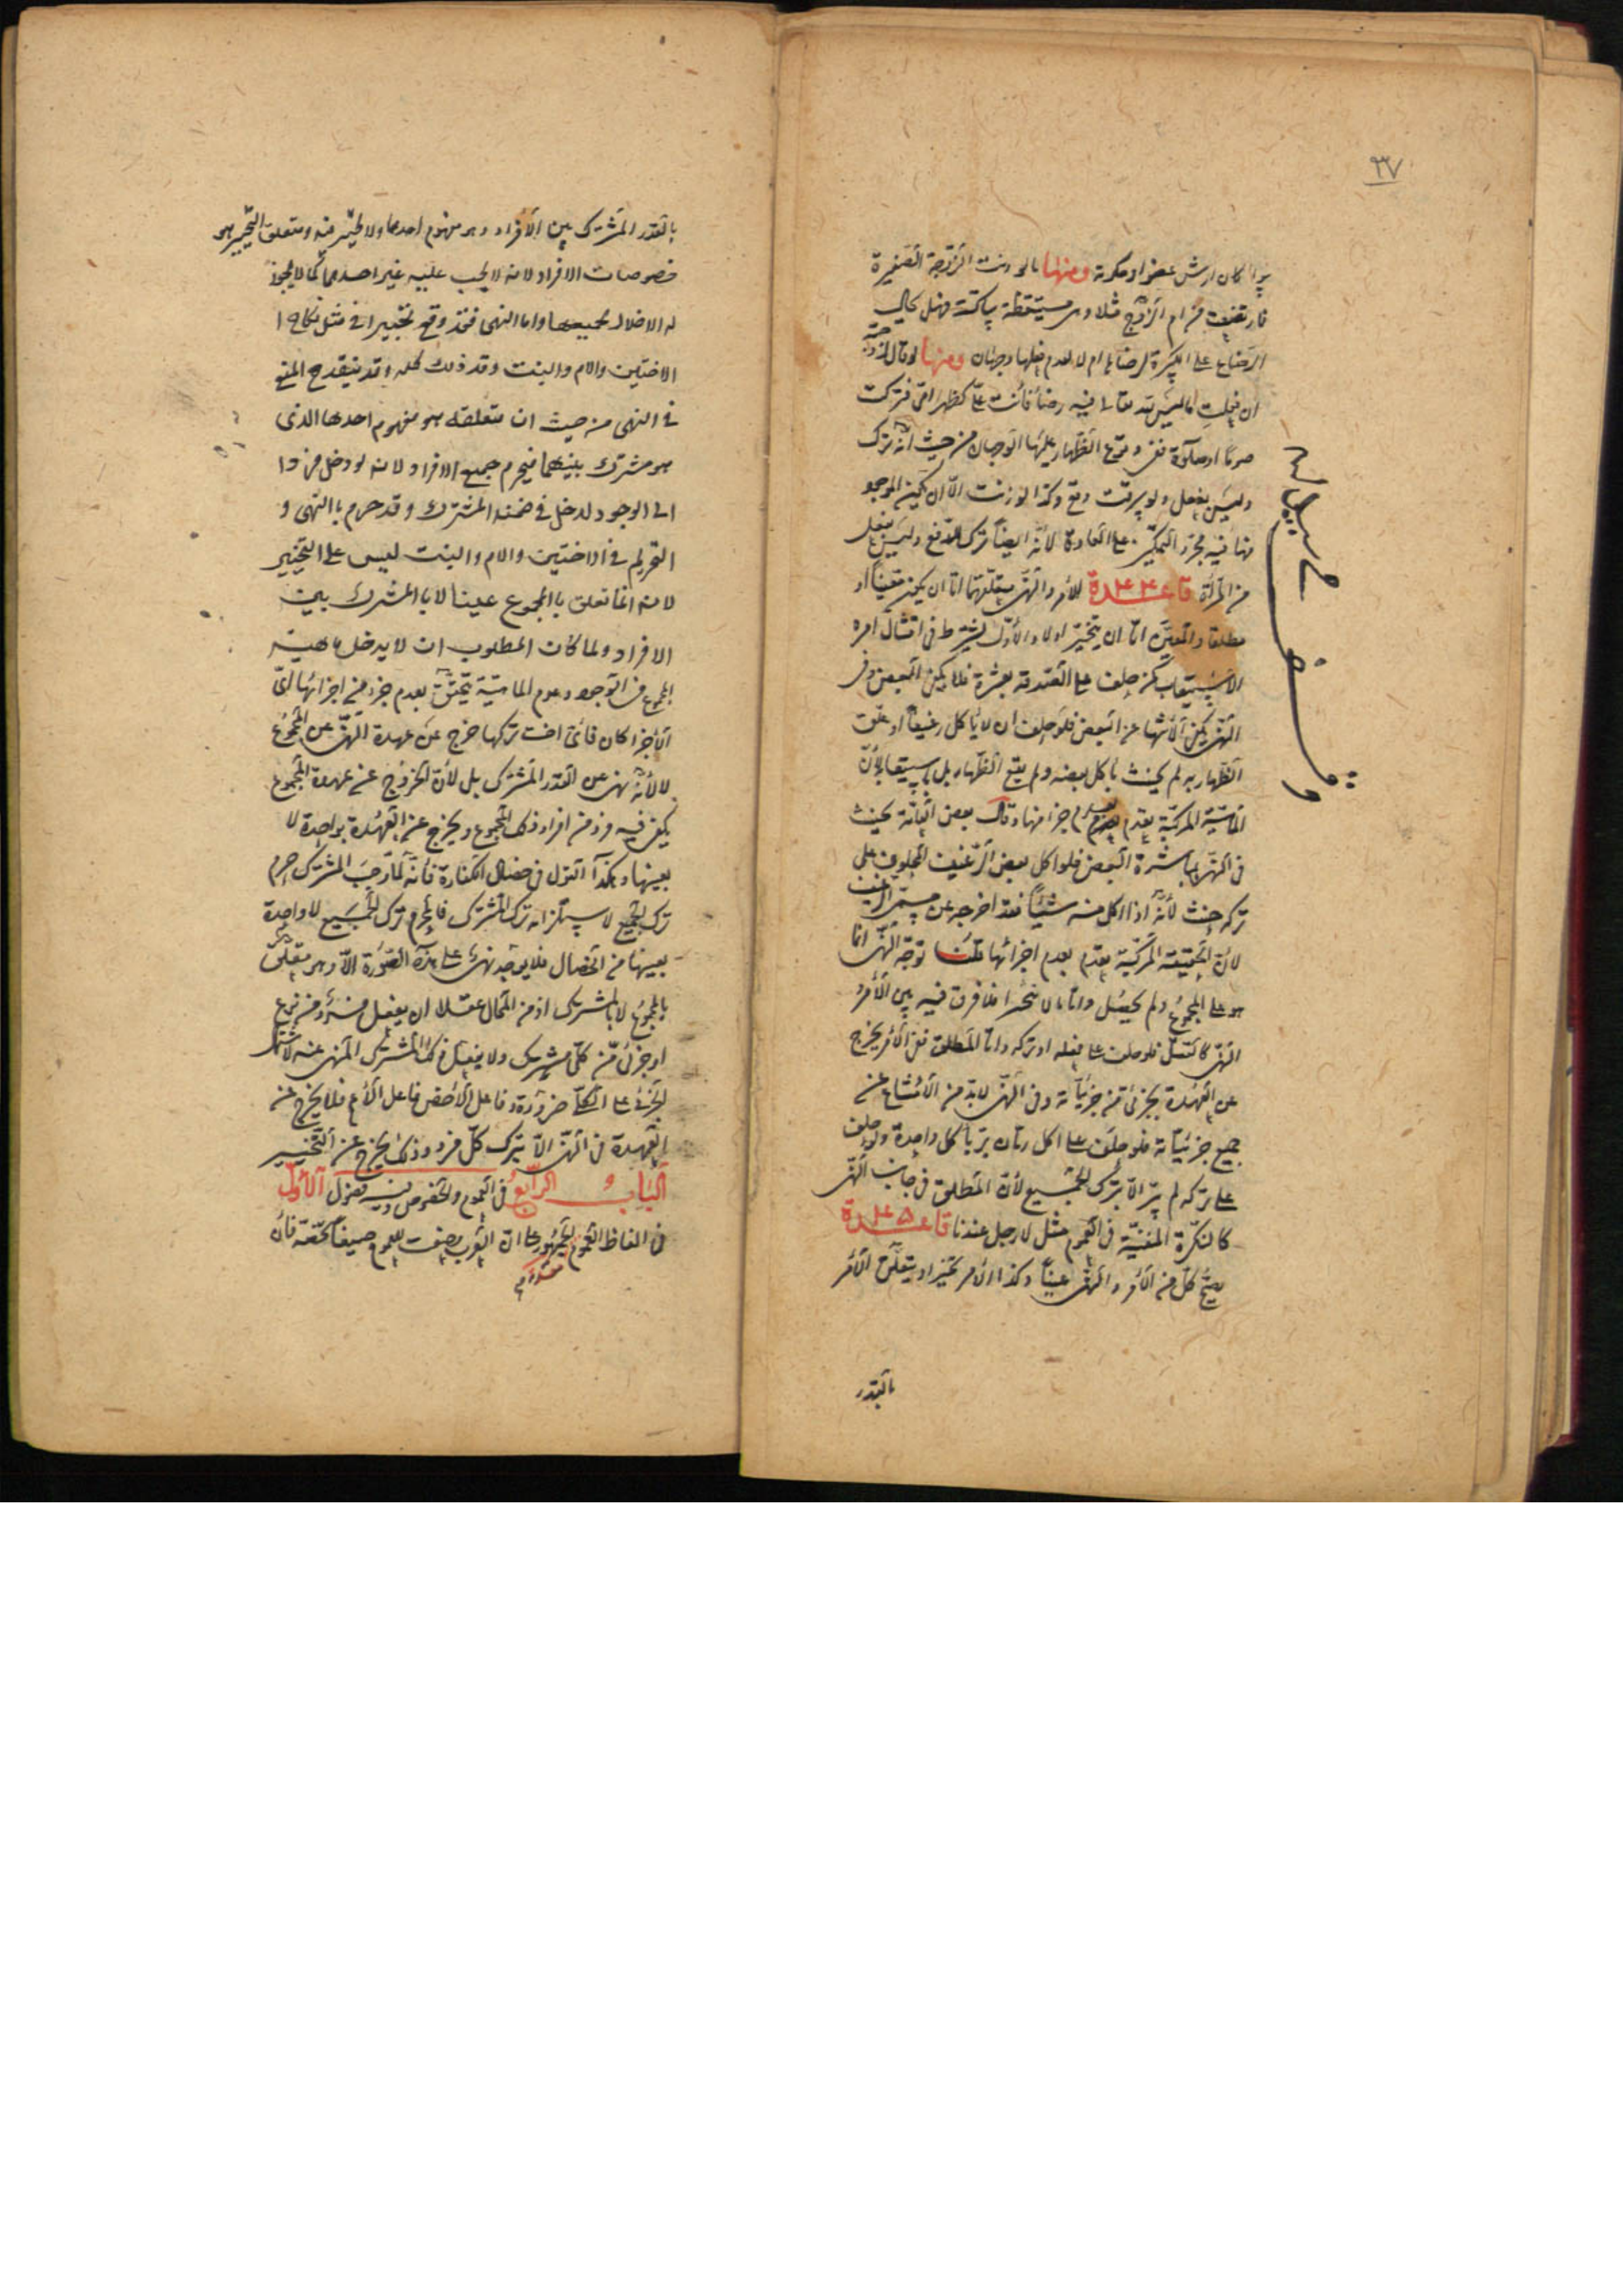 ٣٧
سواء كان ارش عضو او حكومة ومنها ما لو دنت الزّوجة الصّغيرة
فارتضعت من ام الزّوج مثلا وهي مستيقظة ساكتة فهل يحال
الرضاع على الكبيرة لرضاها ام لا لعدم فعلها وجهان ومنها لو قال لزوجته
ان فعلت ما ليس لله تعالى فيه رضا فأنت علىّ كظهر امّى فتركت
صوما او صلوة ففى وقوع الظّهار عليها الوجهان من حيث انّه ترك
وليس بفعل ولو سرقت وقع وكذا لو زنت الّا ان يكون الموجود
منها فيه مجرّد التمكين على العادة لأنّه ايضا ترك للدّفع وليس بفعل
من المرأة قاعدة الأمر والنّهى متعلّقهما امّا ان يكون معيّنا او
مطلقا والمعيّن امّا ان يتخيّر اولا والأوّل يشترط فى امتثال امره
الاستيعاب كمن حلف على الصّدقة بعشرة فلا يكفى البعض وفى
النّهى يكفى الانتهاء عن البعض فلو حلف ان لا يأكل رغيفا او علّق
الظّهار به لم يحنث بأكل بعضه ولم يقع الظّهار بل باستيعابه لأنّ
الماهيّة المركّبة تعدم بعدم جزء منها وقال بعض العامّة يحنث
فى النّهى بمباشرة البعض فلو اكل بعض الرّغيف المحلوف على
تركه حنث لأنّه اذا اكل منه شيئا فقد اخرجه عن مسمّى الرغيف
لأنّ الحقيقة المركّبة تعدم بعدم اجزائها قلنا توجّه النّهى انما
هو على المجموع ولم يحصل وامّا ما لا يتجزّأ فلا فرق فيه بين الأمر و
النّهى كالقتل فلو حلف على فعله او تركه وامّا المطلق ففى الأمر يخرج
عن العهدة بجزئى من جزئيّاته وفى النّهى لا بدّ من الامتناع عن
جميع جزئيّاته فلو حلف على اكل رمّان برّ بأكل واحدة ولو حلف
على تركه لم يبرّ الّا بترك الجميع لأنّ المطلق فى جانب النّهى
كالنكرة المنفيّة فى العموم مثل لا رجل عندنا قاعدة
يصحّ كلّ من الأمر والنّهى عينا وكذا الأمر تخييرا ويتعلّق الأمر
بالقدر
بالقدر المشترك بين الأفراد وهو مفهوم احدها ولا تخيير فيه ومتعلق التخيير هو
خصوصات الافراد لانه لا يجب عليه غير احدهما كما لا يجوز
له الاخلال بجميعها واما النهى فقد وقع تخييرا فى مثل نكاح ا
الاختين والام والبنت وقد ذلك كله وقد ينقدح المنع
فى النهى من حيث ان متعلقه هو مفهوم احدها الذى
هو مشترك بينهما فيحرم جميع الافراد لانه لو دخل فرد ا
الى الوجود لدخل فى ضمنه المشترك وقد حرم بالنهى و
التحريم فى الاختين والام والبنت ليس على التخيير
لانه انما تعلق بالمجموع عينا لا بالمشترك بين
الافراد ولما كان المطلوب ان لا يدخل ماهية
المجموع فى الوجود وعدم الماهيّة يتحقّق بعدم جزء من اجزائها اىّ
الأجزاء كان فأىّ اخت تركها خرج عن عهدة النّهى عن المجموع
لا لأنّه نهى عن القدر المشترك بل لأنّ الخروج عن عهدة المجموع
يكفى فيه فرد من افراد ذلك المجموع ويخرج عن العهدة بواحدة لا
بعينها وهكذا القول فى خصال الكفّارة فأنّه لمّا وجب المشترك حرم
ترك الجميع لاستلزامه ترك المشترك فالمحرم ترك الجميع لا واحدة
بعينها من الخصال فلا يوجد نهى على هذه الصّورة الّا وهو متعلّق
بالمجموع لا بالمشترك اذ من المحال عقلا ان يفعل فرد من نوع
او جزئى من كلّى مشترك ولا يفعل ذلك المشترك المنهى عنه لاشتمال
الجزئى على الكلّى ضرورة وفاعل الأخصّ فاعل الأعمّ فلا يخرج عن
العهدة فى النّهى الّا بترك كلّ فرد وذلك يخرج عن التّخيير
الباب الرابع فى العموم والخصوص وفيه فصول الأوّل
فى الفاظ العموم الجمهور على انّ العرب وضعت للعموم صيغا تخصّه فأن